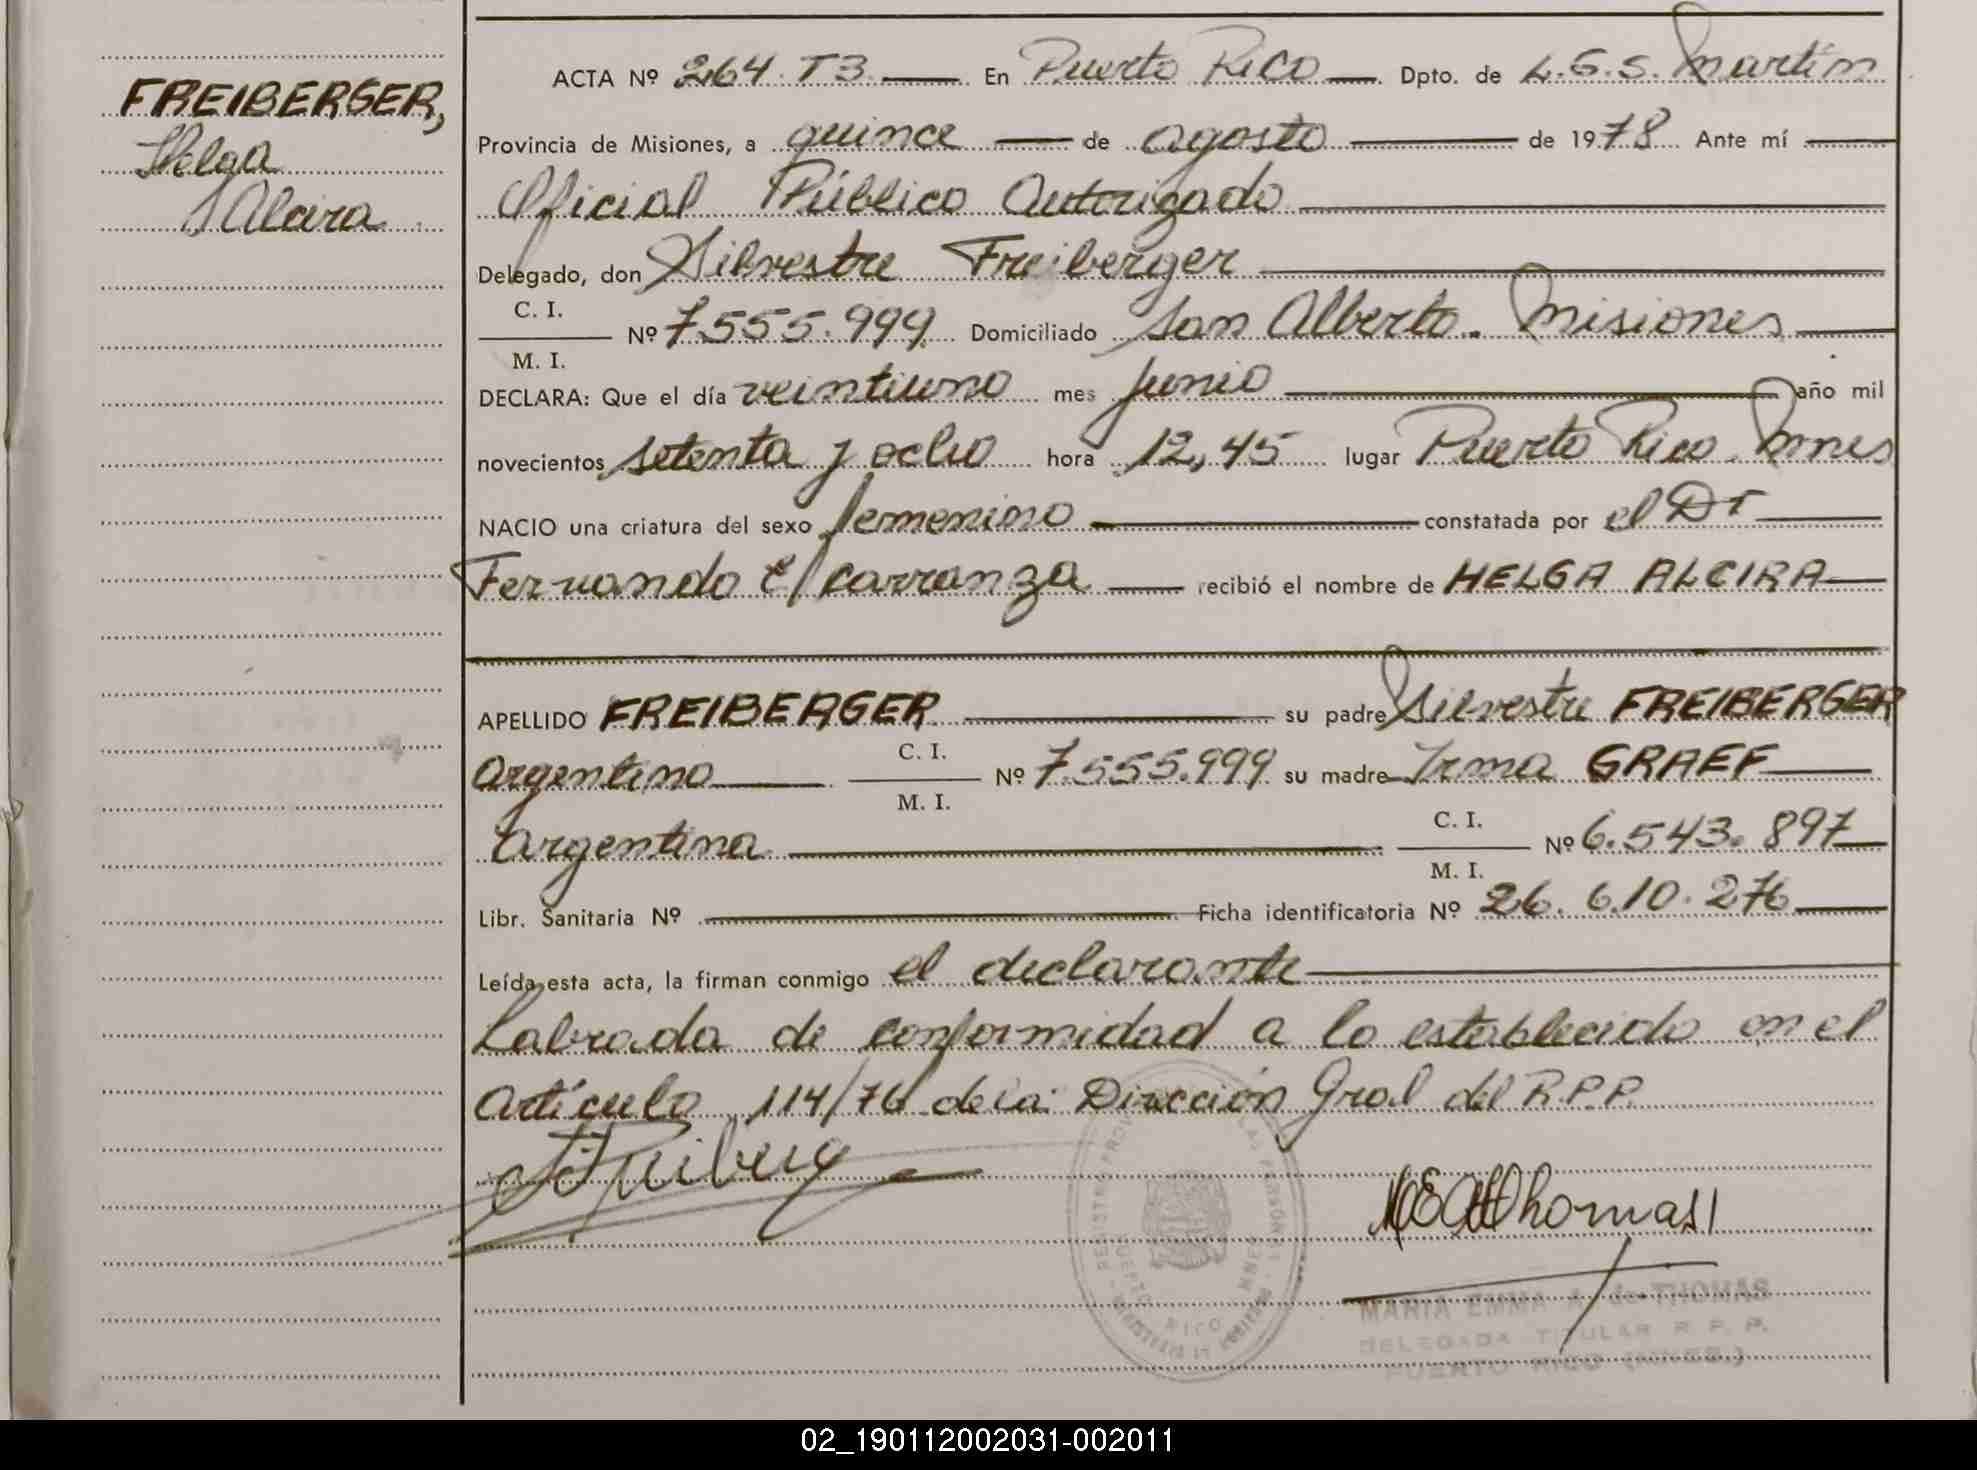 FREIBERGER,
Helga
Alcira
ACTA Nº 264. T3 En Puerto Rico Dpto. de L.G.S. Martín
Provincia de Misiones, a quince de agosto de 1978 Ante mí
Oficial Público Autorizado
Delegado, don Silvestre Freiberger
C. I.
M. I.
Nº 7.555.999 Domiciliado San Alberto. Misiones
DECLARA: Que el día veintiuno mes junio año mil
novecientos setenta y ocho hora 12,45 lugar Puerto Rico. Mnes
NACIO una criatura del sexo femenino constatada por el Dr
Fernando E/ Carranza recibió el nombre de HELGA ALCIRA
APELLIDO FREIBERGER su padre Silvestre FREIBERGER
Argentino C. I. M. I. Nº 7.555.999 su madre Irma GRAEF
Argentina C. I. M. I. Nº 6.543.897
Libr. Sanitaria Nº Ficha identificatoria Nº 26.610.276
Leída esta acta, la firman conmigo el declarante
Labrada de conformidad a lo establecido en el
Artículo 114/76 de la Dirección Gral del R.P.P.
MARIA EMMA A. de THOMAS
DELEGADA TITULAR R. P. P.
PUERTO RICO (MNES.)
02_190112002031-002011